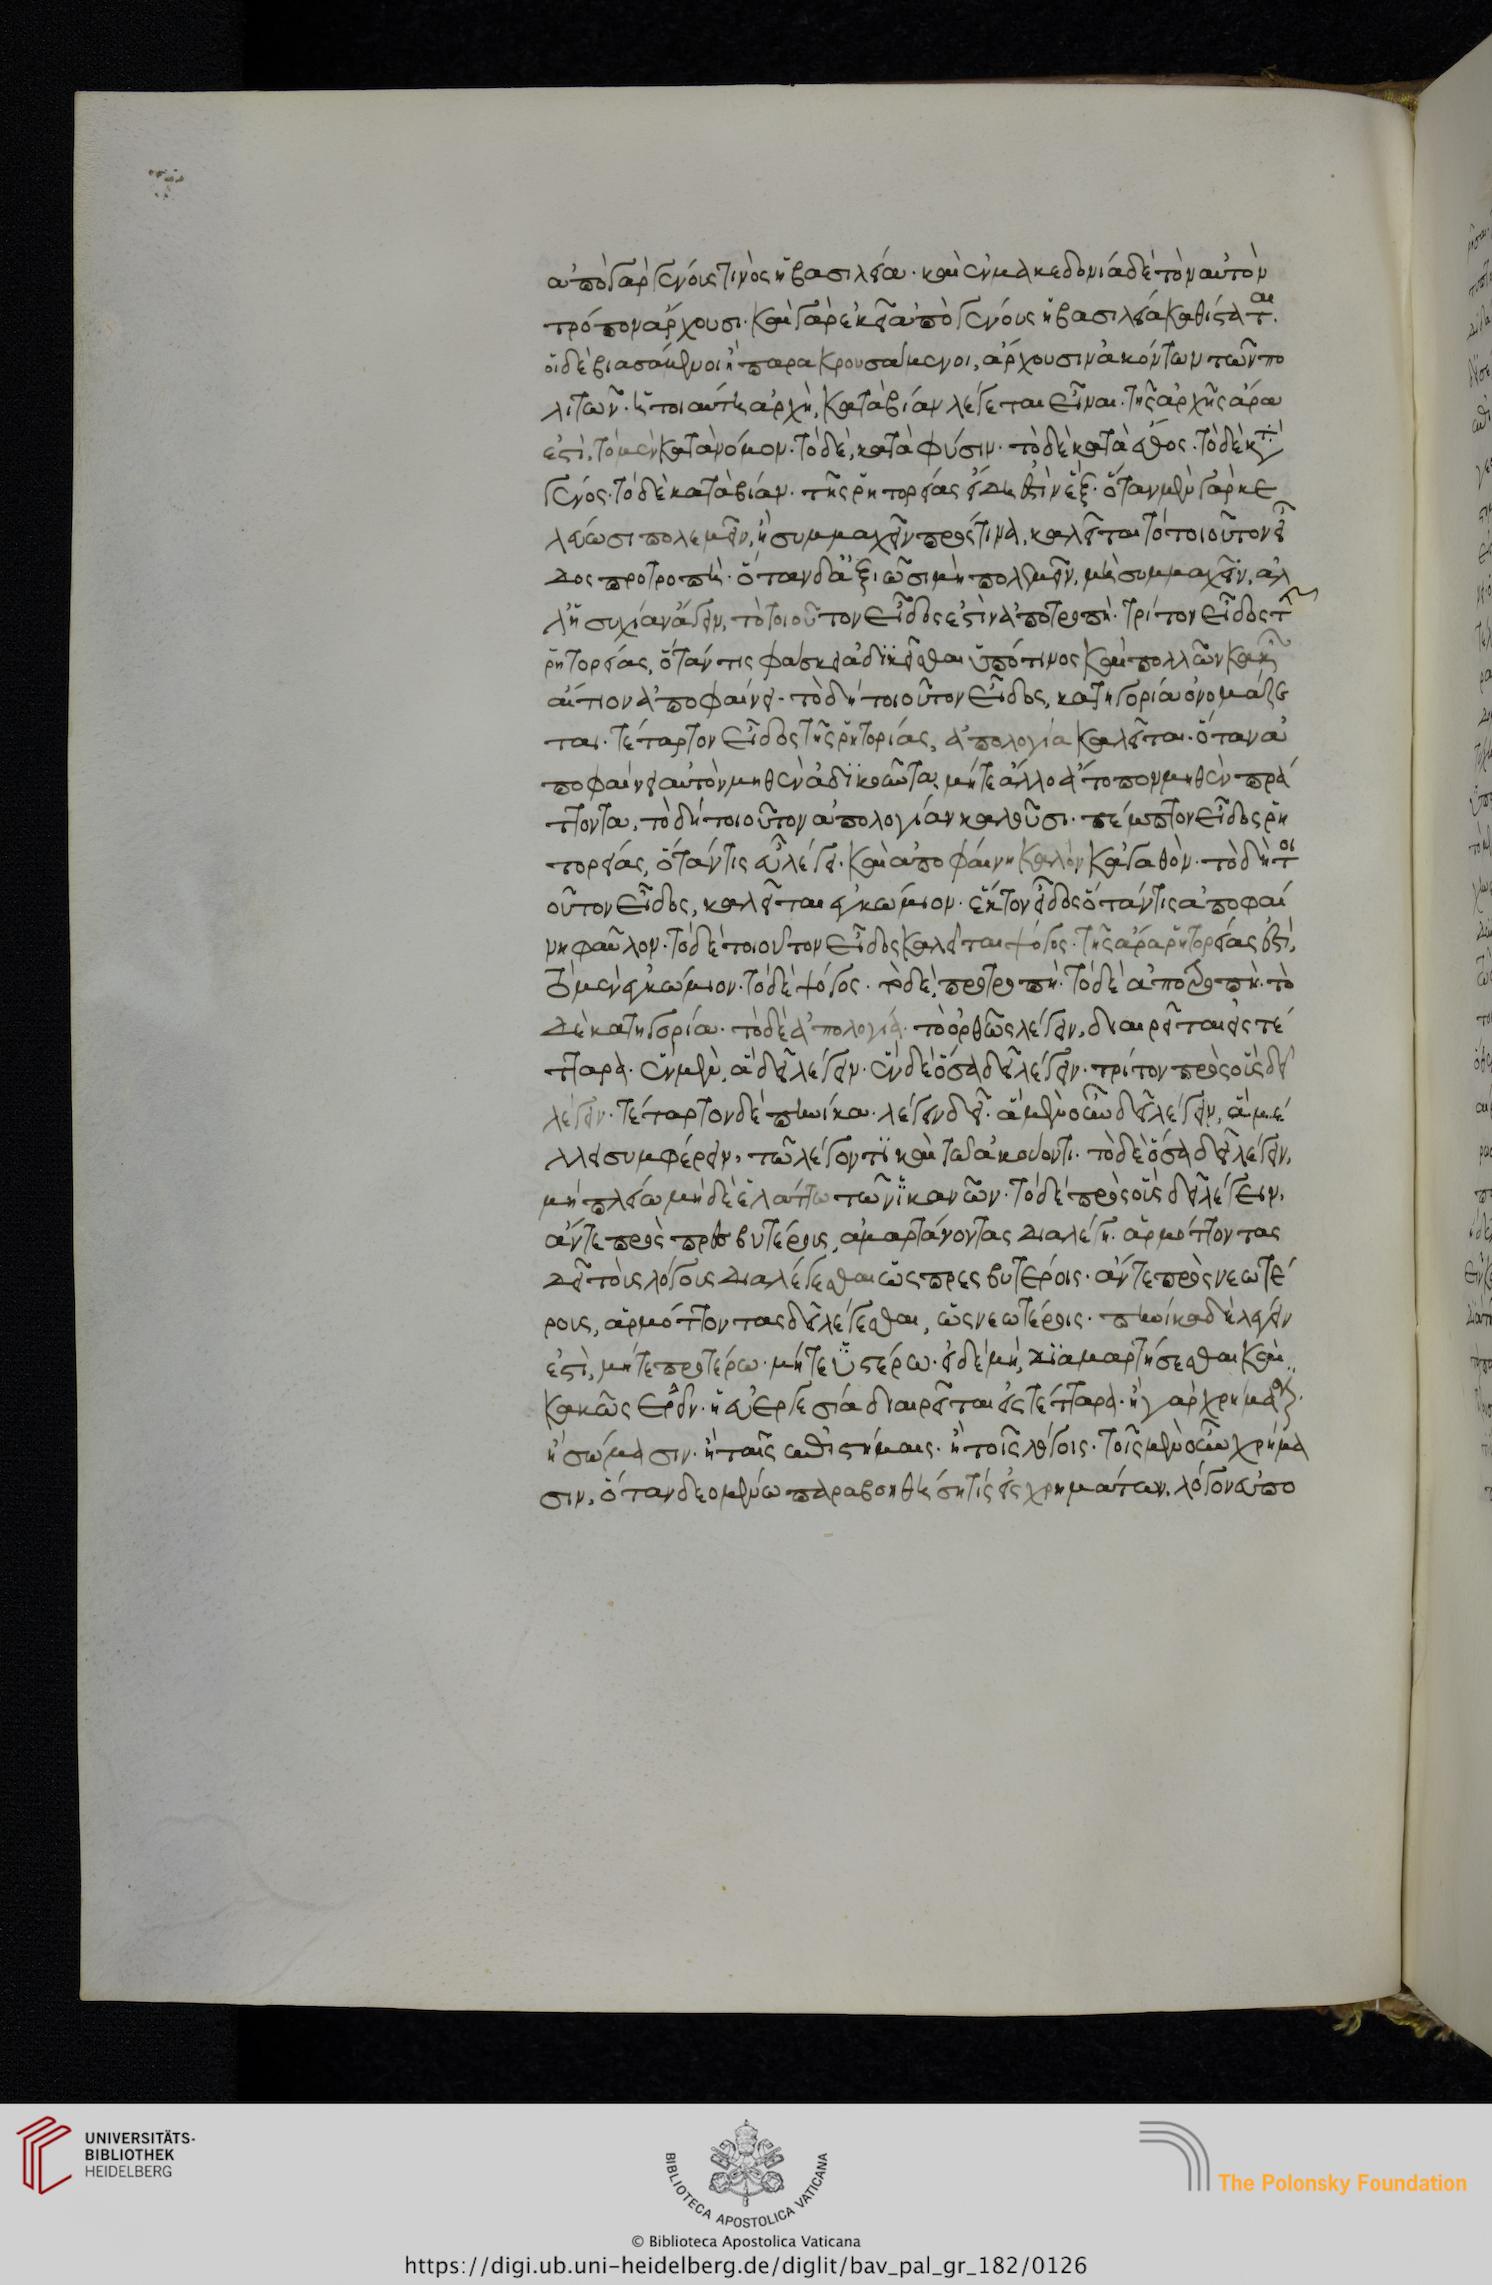 ἀπὸ γὰρ γένους τινὸς ἡ βασιλεία. καὶ ἐν μακεδονία δὲ τὸν αὐτὸν
τρόπον ἄρχουσι. καὶ γὰρ ἐκεῖ ἀπὸ γένους ἡ βασιλεία καθίσταται.
οἱ δὲ βιασάμενοι ἢ παρακρουσάμενοι, ἄρχουσιν ἀκόντων τῶν πο
λιτῶν. ἡ τοιαύτη ἀρχὴ, κατὰ βίαν λέγεται εἶναι. τῆς ἀρχῆς ἄρα
ἐστὶ, τὸ μὲν κατὰ νόμον. τὸ δὲ, κατὰ φύσιν. τὸ δὲ κατὰ ἔθος. τὸ δὲ κατὰ
γένος. τὸ δὲ κατὰ βίαν. τῆς ῥητορείας εἴδη ἐστὶν ἕξ. ὅταν μὲν γὰρ κε
λεύωσι πολεμεῖν, ἢ συμμαχεῖν πρός τινα, καλεῖται τὸ τοιοῦτον εἶ
δος προτροπή. ὅταν δ' ἀξιῶσι μὴ πολεμεῖν, μὴ συμμαχεῖν, ἀλ
λ' ἡσυχίαν ἄγειν, τὸ τοιοῦτον εἶδος ἐστὶν ἀποτροπή. τρίτον εἶδος τῆς
ῥητορείας, ὅταν τις φάσκει ἀδικεῖσθαι ὑπό τινος καὶ πολλῶν κακῶν
αἴτιον ἀποφαίνει. τὸ δὴ τοιοῦτον εἶδος, κατηγορία ὀνομάζε
ται. τέταρτον εἶδος τῆς ῥητορίας, ἀπολογία καλεῖται. ὅταν ἀ
ποφαίνει αὐτὸν μηθὲν ἀδικοῦντα, μήτε ἄλλο ἄτοπον μηθὲν πρά
ττοντα, τὸ δὴ τοιοῦτον ἀπολογίαν καλοῦσι. πέμπτον εἶδος ῥη
τορείας, ὅταν τις εὖ λέγει. καὶ ἀποφαίνη καλὸν κἀγαθὸν. τὸ δὴ τοι
οῦτον εἶδος, καλεῖται ἐγκώμιον. ἕκτον εἶδος ὅταν τις ἀποφαί
νη φαῦλον. τὸ δὲ τοιοῦτον εἶδος καλεῖται ψόγος. τῆς ἄρα ῥητορείας ἐστὶ,
τὸ μὲν ἐγκώμιον. τὸ δὲ ψόγος. τὸ δὲ, προτροπή. τὸ δὲ ἀποτροπή. τὸ
δὲ κατηγορία. τὸ δὲ ἀπολογία. τὸ ὀρθῶς λέγειν, διαιρεῖται εἰς τέ
τταρα. ἓν μὲν, ἃ δεῖ λέγειν. ἓν δὲ ὅσα δεῖ λέγειν. τρίτον πρὸς οὓς δεῖ
λέγειν. τέταρτον δὲ πηνίκα λέγειν δεῖ. ἃ μὲν οὖν δεῖ λέγειν, ἃ μέ
λλει συμφέρειν, τῶ λέγοντι καὶ τῶ ἀκούοντι. τὸ δὲ ὅσα δεῖ λέγειν,
μὴ πλείω μηδὲ ἐλάττω τῶν ἱκανῶν. τὸ δὲ πρὸς οὓς δεῖ λέγειν,
ἄν τε πρὸς πρεσβυτέρους, ἁμαρτάνοντας διαλέγη. ἁρμόττοντας
δεῖ τοὺς λόγους διαλέγεσθαι ὡς πρεσβυτέροις. ἄν τε πρὸς νεωτέ
ρους, ἁρμόττοντας δεῖ λέγεσθαι, ὡς νεωτέροις. πηνίκα δὴ λέγειν
ἐστὶ, μήτε προτέρω. μήτε ὑστέρω. εἰ δὲ μὴ, διαμαρτήσεσθαι καὶ
κακῶς ἐρεῖν. ἡ εὐεργεσία διαιρεῖται εἰς τέτταρα. ἢ γὰρ χρήμασιν.
ἢ σώμασιν. ἢ ταῖς ἐπιστήμαις. ἢ τοῖς λόγοις. τοῖς μὲν οὖν χρήμα
σιν, ὅταν δεομένω παραβοηθήση τίς εἰς χρημάτων, λόγον ἀπο
UNIVERSITÄTS-
BIBLIOTHEK
HEIDELBERG
BIBLIOTECA APOSTOLICA VATICANA
The Polonsky Foundation
© Biblioteca Apostolica Vaticana
https://digi.ub.uni-heidelberg.de/diglit/bav_pal_gr_182/0126